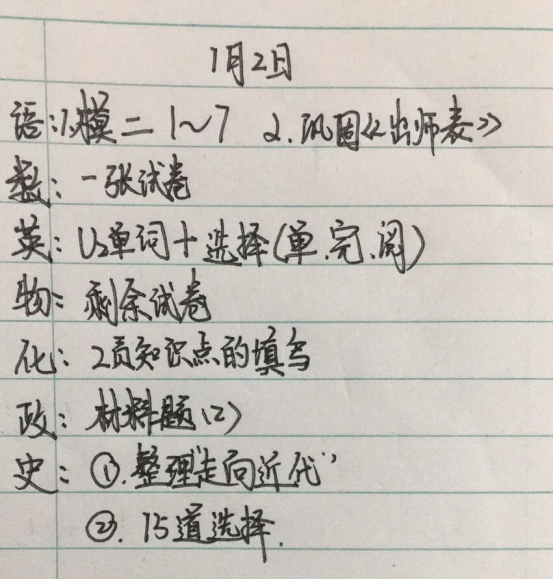 1月2日
语:1.模二 1~7 2.巩固《出师表》
数: 一张试卷
英: U2单词+选择(单.完.阅)
物: 剩余试卷
化: 2页知识点的填写
政: 材料题(2)
史: ①.整理"走向近代"
②. 15道选择.